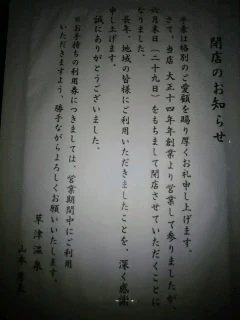 閉店のお知らせ
平素は格別のご愛顧を賜り厚くお礼申し上げます。
さて、当店 大正十四年年創業より営業して参りましたが
六月末日(二十九日)をもちまして閉店させていただくことに
なりました。
長年、地域の皆様にご利用いただきましたことを、深く感謝
申し上げます。
誠にありがとうございました。
※お手持ちの利用券につきましては、営業期間中にご利用
いただきますよう、勝手ながらよろしくお願いいたします。
草津温泉
山本